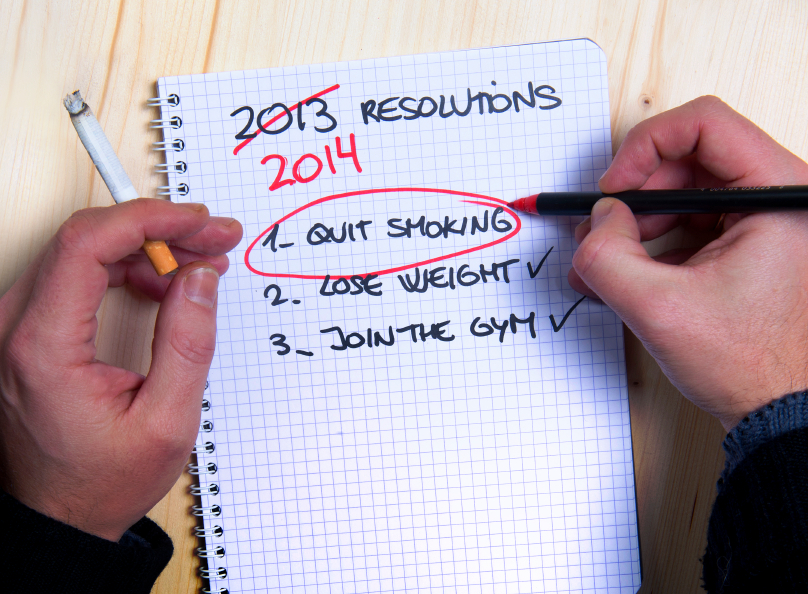 2013 RESOLUTIONS
2014
1- QUIT SMOKING
2. LOSE WEIGHT ✓
3- JOIN THE GYM ✓